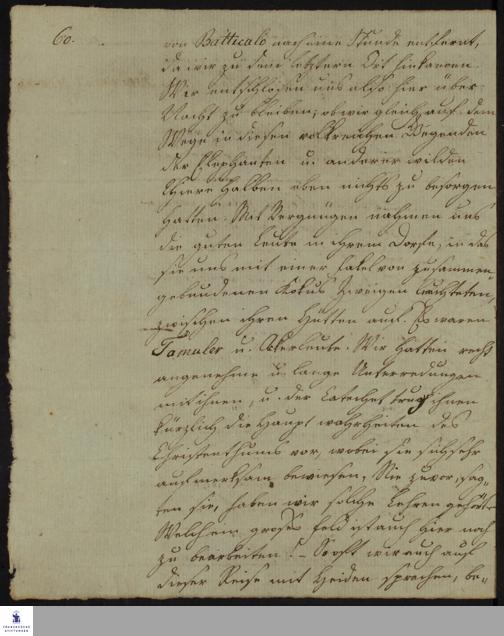 60.
von Batticalo noch eine Stunde entfernt,
da wir zu dem letztern Ort hinkamen.
Wir entschloßen uns also hier über
Nacht zu bleiben, ob wir gleich auf dem
Wege in diesen volkreichen Gegenden
der Elephanten u. anderer wilden
Thiere halben eben nichts zu besorgen
hatten. Mit Vergnügen nahmen uns
die guten Leute in ihrem Dorfe, in das
sie uns mit einer Fakel von zusammen
gebundenen Kokus Zweigen leuchteten,
zwischen ihren Hütten auf. Es waren
Tamuler u. Akerleute. Wir hatten recht
angenehme u. lange Unterredungen
mit ihnen, u. der Catechet trug ihnen
kürzlich die Haupt wahrheiten des
Christenthums vor, wobei sie sich sehr
aufmerksam bewiesen. Nie zuvor, sag-
ten sie, haben wir solche Lehren gehört.
Welch ein großes Feld ist auch hier noch
zu bearbeiten! – So oft wir auch auf
dieser Reise mit Heiden sprachen, be-
FRANCKESCHE
STIFTUNGEN